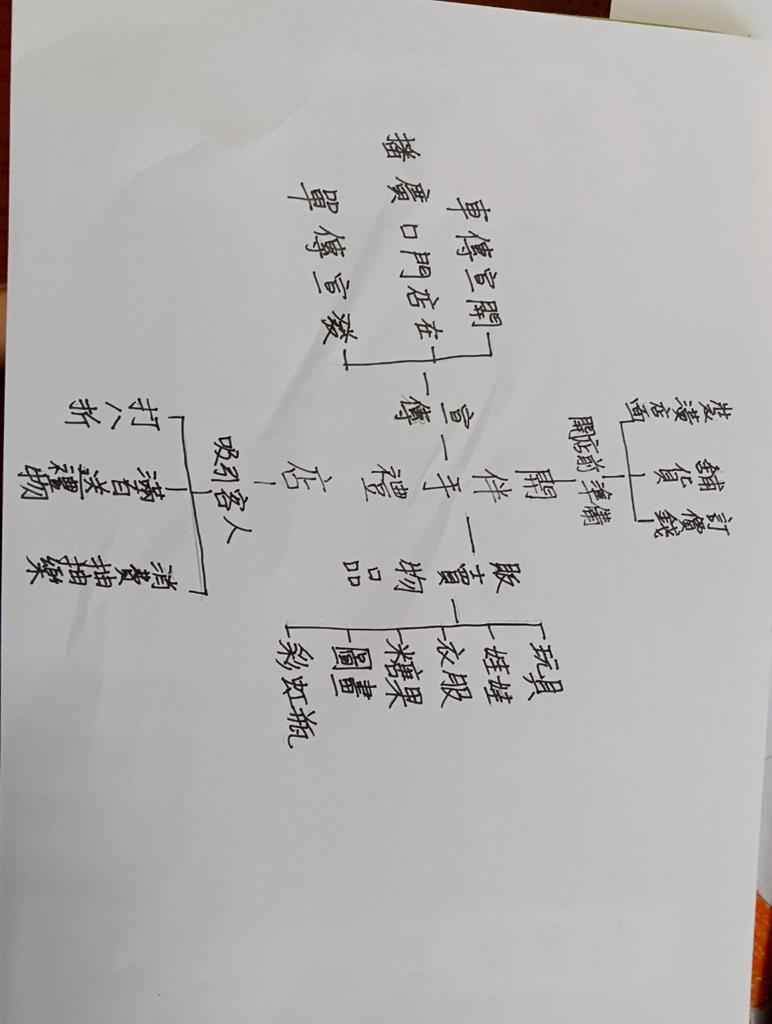 裝潢店面
舖貨
訂價錢
開店前準備
開伴手禮店
宣傳
開宣傳車
在店門口廣播
發宣傳單
販賣物品
玩具
娃娃
衣服
糖果
圖畫
彩虹瓶
吸引客人
打八折
滿百送禮物
消費抽抽樂